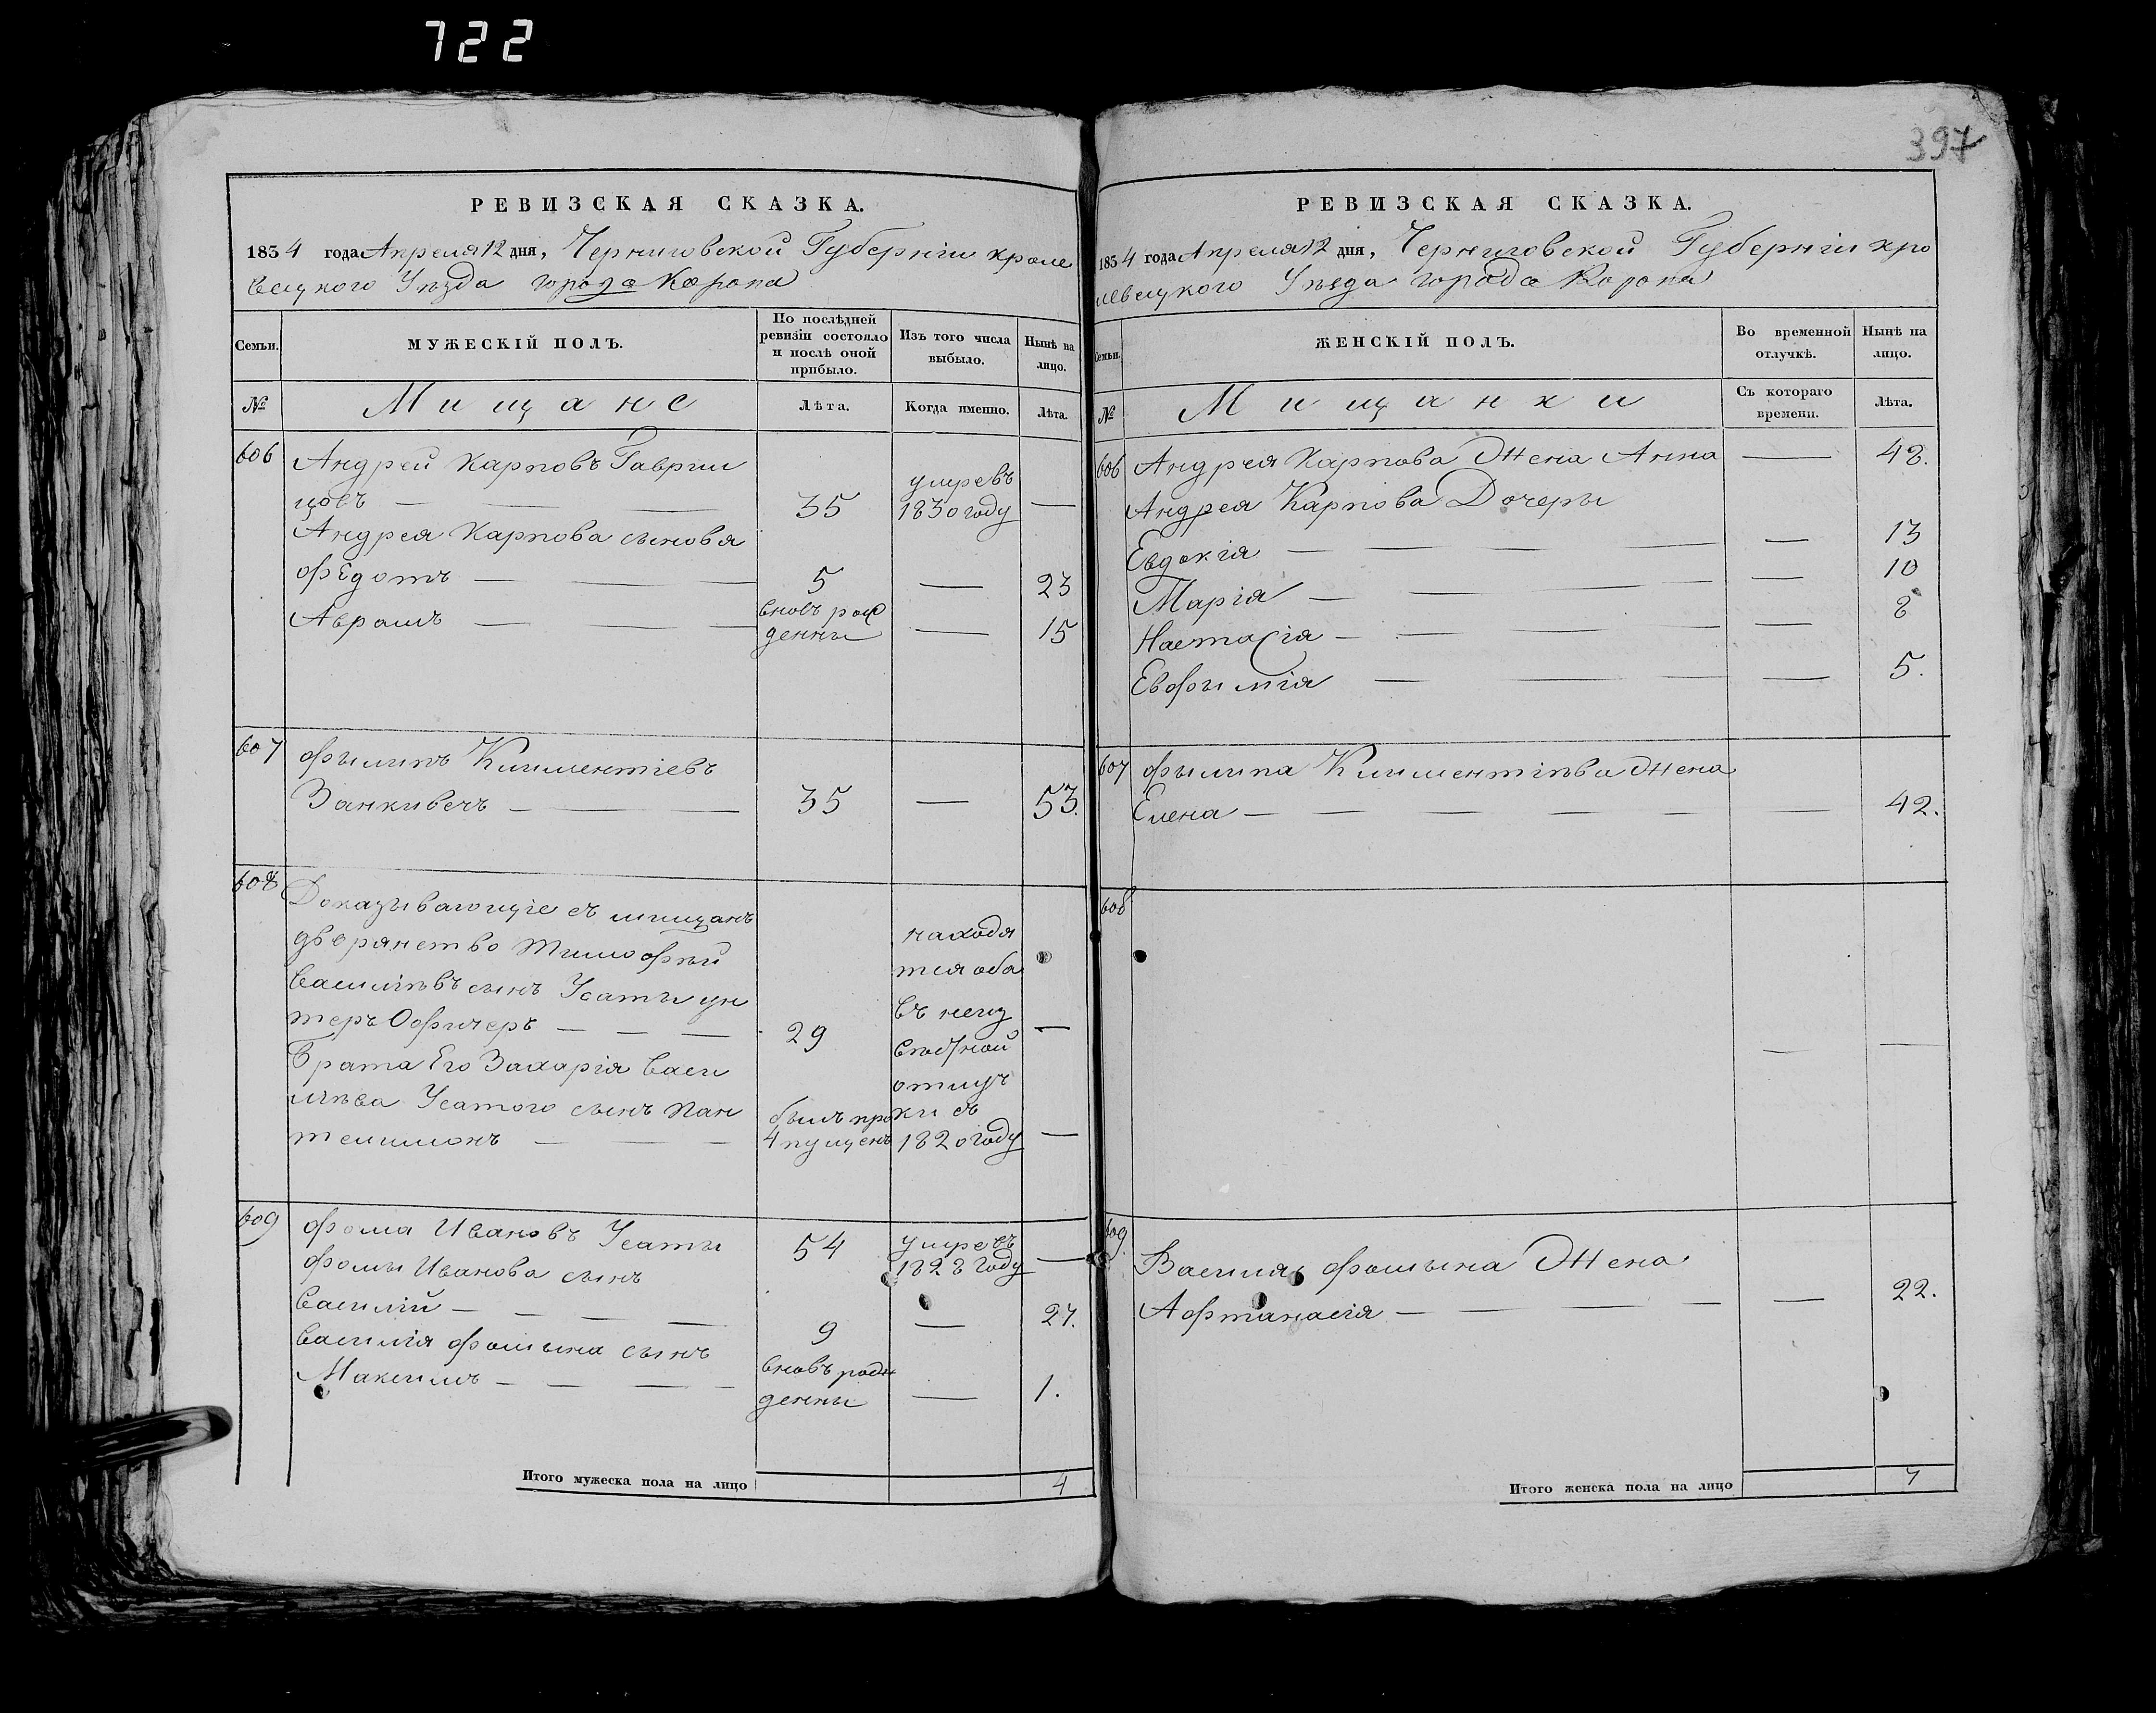 722
397
РЕВИЗСКАЯ СКАЗКА.
1854 года Апреля 12 дня, Черниговской Губерніи кроле
вецкого Уѣзда города Коропа
Семьи.
МУЖЕСКІЙ ПОЛЪ.
По послѣдней
ревизіи состояло
и послѣ оной
прибыло.
Изъ того числа
выбыло.
Нынѣ на
лицо.
№
Мищане
Лѣта.
Когда именно.
Лѣта.
606
Андрей Карповъ Гаврии
цовъ — 35 умревъ 1830 году —
Андрея Карпова сыновя
Федотъ — 5 — 23
Аврамъ — вновь рож
денны — 15
607
Филипъ Климентіевъ
Занкивечъ — 35 — 53.
608
Доказывающіе съ мищанъ
дворянство Тимофѣй
Василѣвъ сынъ Усаты ун
теръ Офичеръ — 29 —
Брата Его Захарія Васи
лѣва Усатого сынъ Пан
телимонъ — 4 былъ про
пущенъ —
находя
тся оба
въ неиз
вѣстной
отлуч
ки съ
1820 году
609
Фома Ивановъ Усаты 54 умревъ
1828 году —
Фомы Иванова сынъ
Василій — 9 — 27.
Василія Фомына сынъ
Максимъ — вновь рож
денны — 1.
Итого мужеска пола на лицо 4
РЕВИЗСКАЯ СКАЗКА.
1854 года Апреля 12 дня, Черниговской Губерніи кро
левецкого Уѣзда города Коропа
Семьи.
ЖЕНСКІЙ ПОЛЪ.
Во временной
отлучкѣ.
Нынѣ на
лицо.
№
Мищанки
Съ котораго
времени.
Лѣта.
606
Андрея Карпова Жена Анна — 48.
Андрея Карпова Дочеры
Евдокія — 13
Марія — 10
Настасія — 8
Евфымія — 5.
607
Филипа Климентіѣва Жена
Елена — 42.
608
— —
609
Василя Фомына Жена
Афтанасія — 22.
Итого женска пола на лицо 7